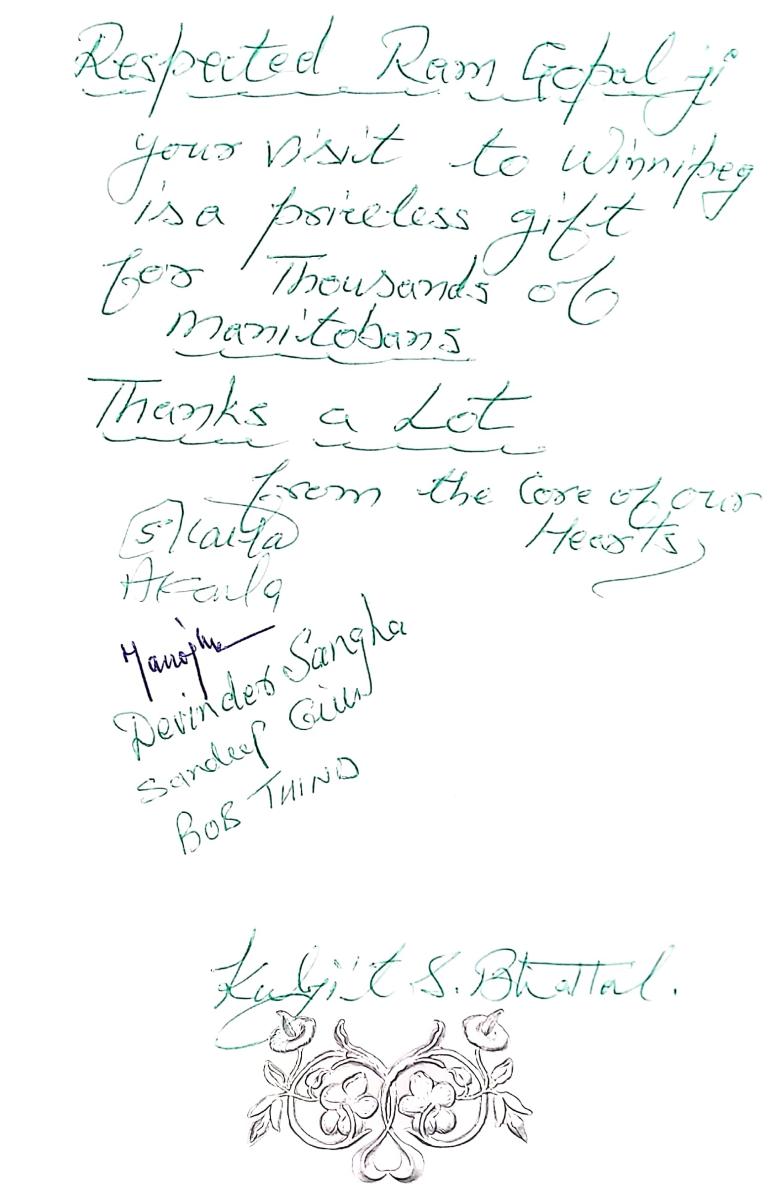 Respected Ram Gopal ji
your visit to Winnipeg
is a priceless gift
for Thousands of
Manitobans
Thanks a Lot
from the Core of our
Hearts
Devinder Sangha
Sandeep Gill
BOB THIND
Kuljit S. Bhattal.